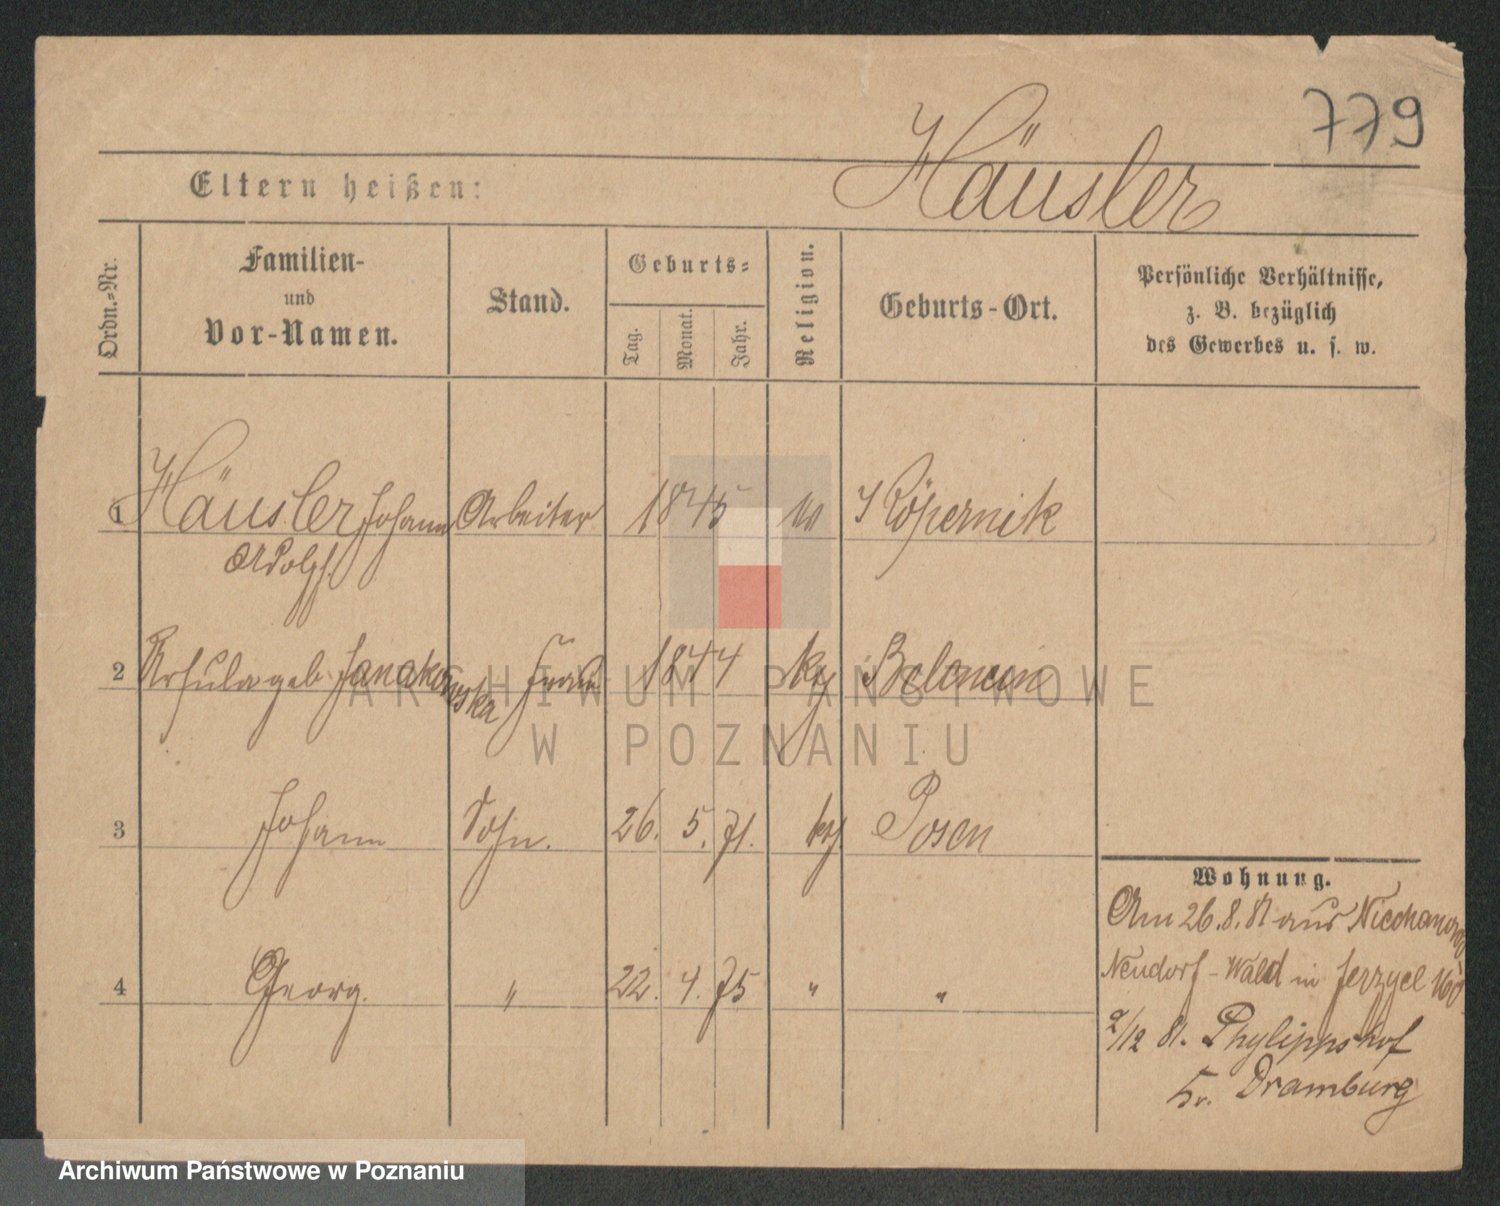 779
Häusler
Eltern heißen:
Ordn.-Nr.
Familien-
und
Vor-Namen.
Stand.
Geburts-
Tag.
Monat.
Jahr.
Religion.
Geburts-Ort.
Persönliche Verhältnisse,
z. B. bezüglich
des Gewerbes u. s. w.
1 Häusler Johann Arbeiter 1845 Köpernik
Adolph
2 Ursula geb. Janakowska Frau 1844
ARCHIWUM PAŃSTWOWE
W POZNANIU
3 Johann Sohn. 26. 5. 71. Posen
4 Georg. " 22. 4. 75 " "
Wohnung.
Am 26.8.81 aus
Neudorf-Wald in
2/12 81. Phylippshof
Kr. Dramburg
Archiwum Państwowe w Poznaniu